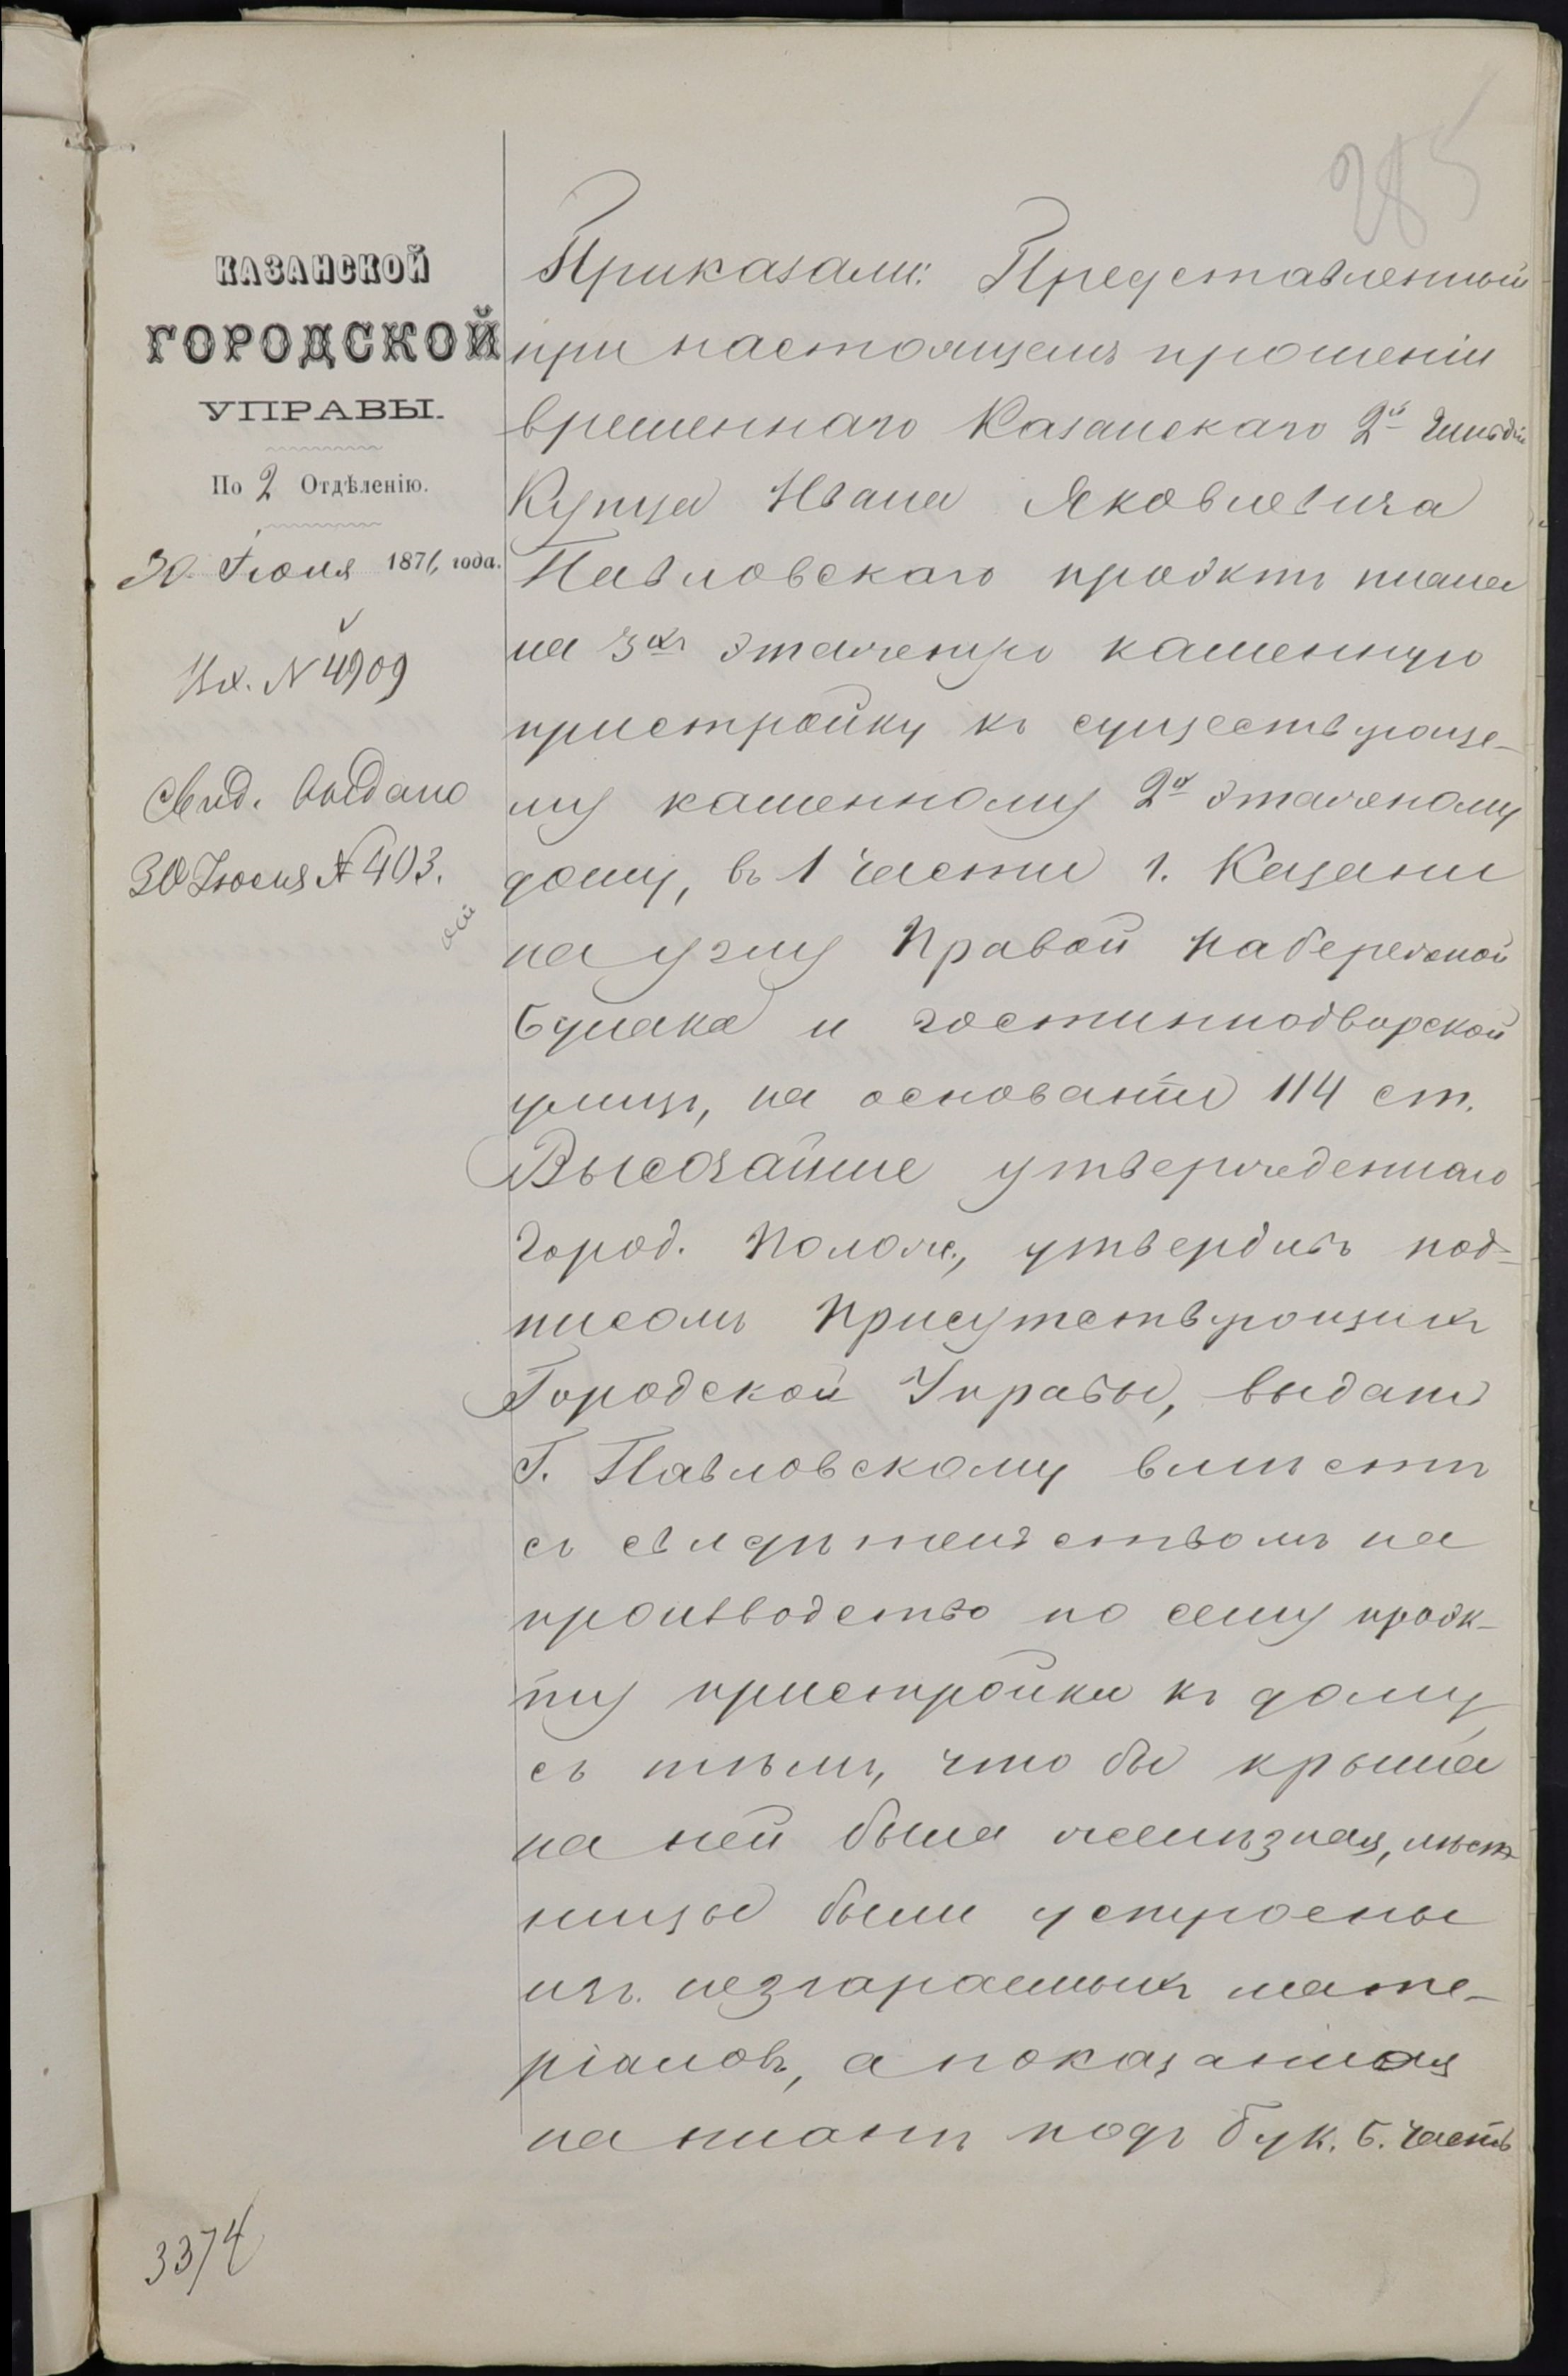 285
КАЗАНСКОЙ
ГОРОДСКОЙ
УПРАВЫ.
По 2 Отдѣленію.
30 Іюня 1871 года.
Вх. N 4909
Свид. выдано
30 Іюня № 403.
Приказали: Представленный
при настоящемъ прошеніи
временнаго Казанскаго 2й Гильдіи
Купца Ивана Яковлевича
Павловскаго проэктъ плана
на 3хъ этажную каменную
пристройку къ существующе-
му каменному 2х этажному
дому, въ 1 части г. Казани
на углу Правой Набережной
Булака и гостиннодворской
улицъ, на основаніи 114 ст.
Высочайше утвержденнаго
Город. Полож., утвердивъ под-
писомъ Присутствующихъ
Городской Управы, выдать
Г. Павловскому вмѣстѣ
съ свидѣтельствомъ на
производство по сему проэк-
ту пристройки къ дому,
съ тѣмъ, что бы крыша
на ней была желѣзная, лѣст-
ницы были устроены
изъ незгараемыхъ мате-
ріаловъ, а показанная
на планѣ подъ бук. Б. часть
3374